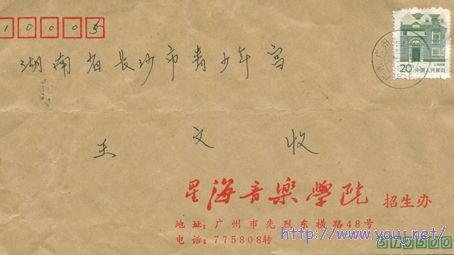 410005
湖南省长沙市青少年宫
王文收
20 中国人民邮政
星海音樂學院 招生办
地址:广州市先烈东横路48号
电话:775808转
http://www.youj.net/
510500